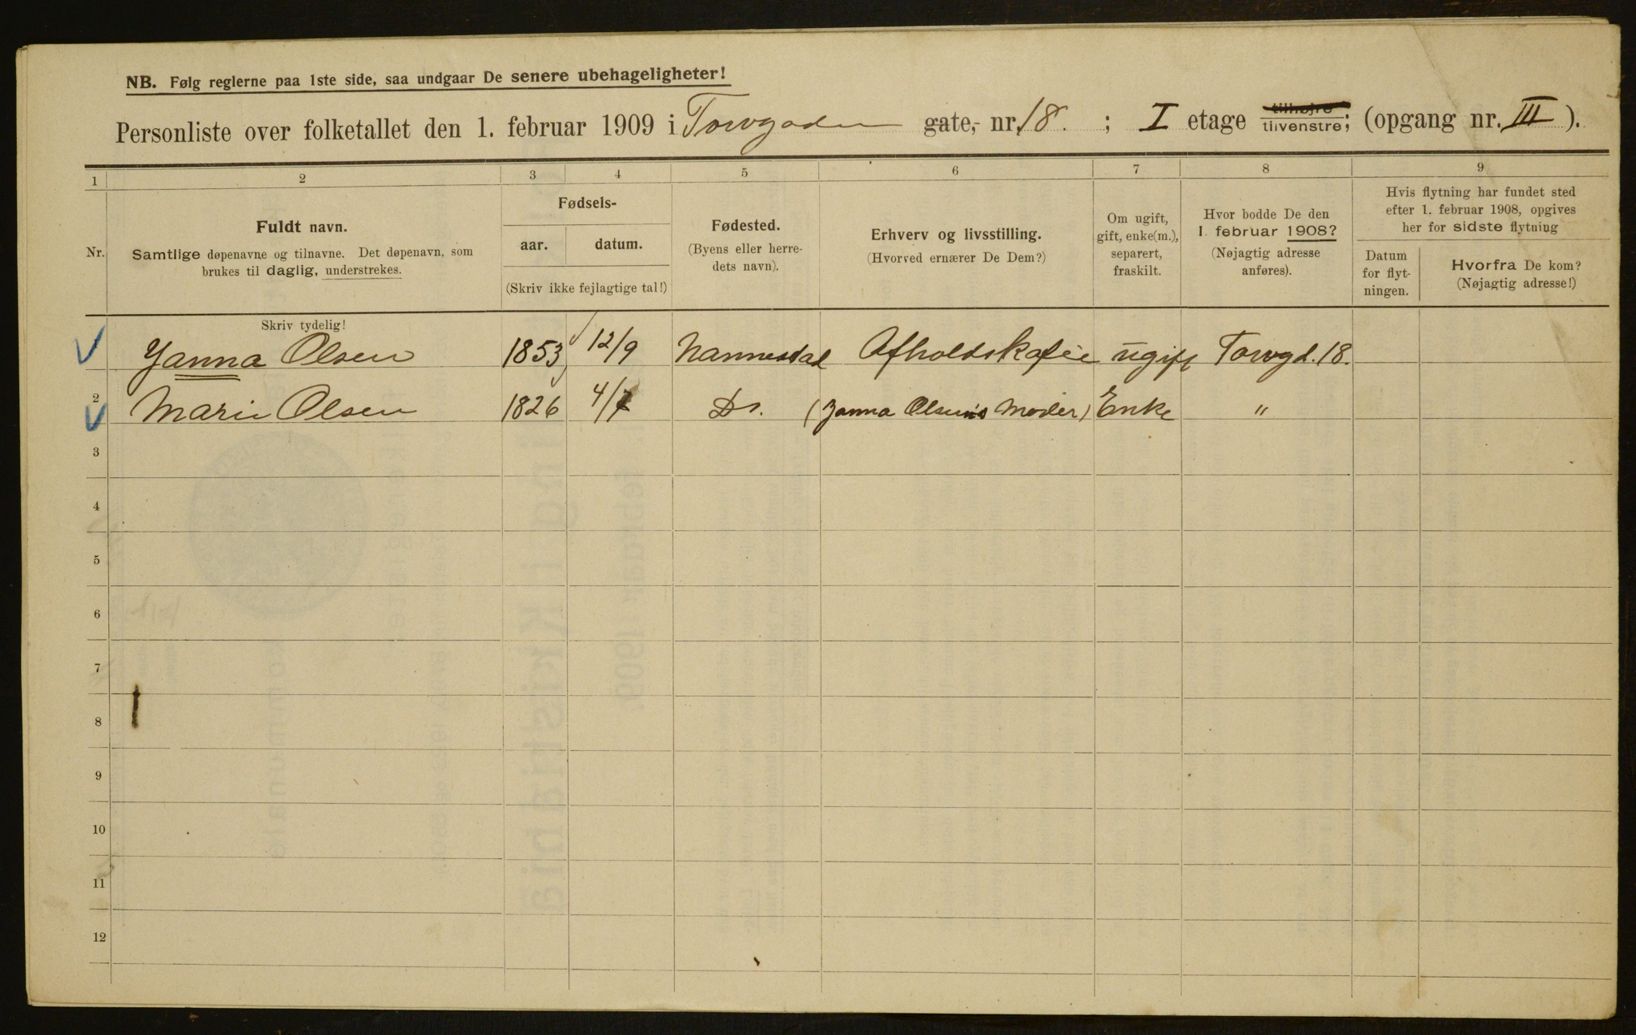 NB. Følg reglerne paa 1ste side, saa undgaar De senere ubehageligheter!
Personliste over folketallet den 1. februar 1909 i Torvgaden gate, nr. 18. ; I etage tilhøjre tilvenstre; (opgang nr. III ).
1 2 3 4 5 6 7 8 9
Nr.
Fuldt navn.
Samtlige døpenavne og tilnavne. Det døpenavn, som
brukes til daglig, understrekes.
Fødsels-
aar. datum.
(Skriv ikke fejlagtige tal!)
Fødested.
(Byens eller herre-
dets navn).
Erhverv og livsstilling.
(Hvorved ernærer De Dem?)
Om ugift,
gift, enke(m.),
separert,
fraskilt.
Hvor bodde De den
1. februar 1908?
(Nøjagtig adresse
anføres).
Hvis flytning har fundet sted
efter 1. februar 1908, opgives
her for sidste flytning
Datum
for flyt-
ningen.
Hvorfra De kom?
(Nøjagtig adresse!)
Skriv tydelig!
Janna Olsen 1853 12/9 Nannestad Afholdskafée ugift Torvgd. 18.
2 Marie Olsen 1826 4/7 Do. (Janna Olsens Moder) Enke "
3
4
5
6
7
8
9
10
11
12